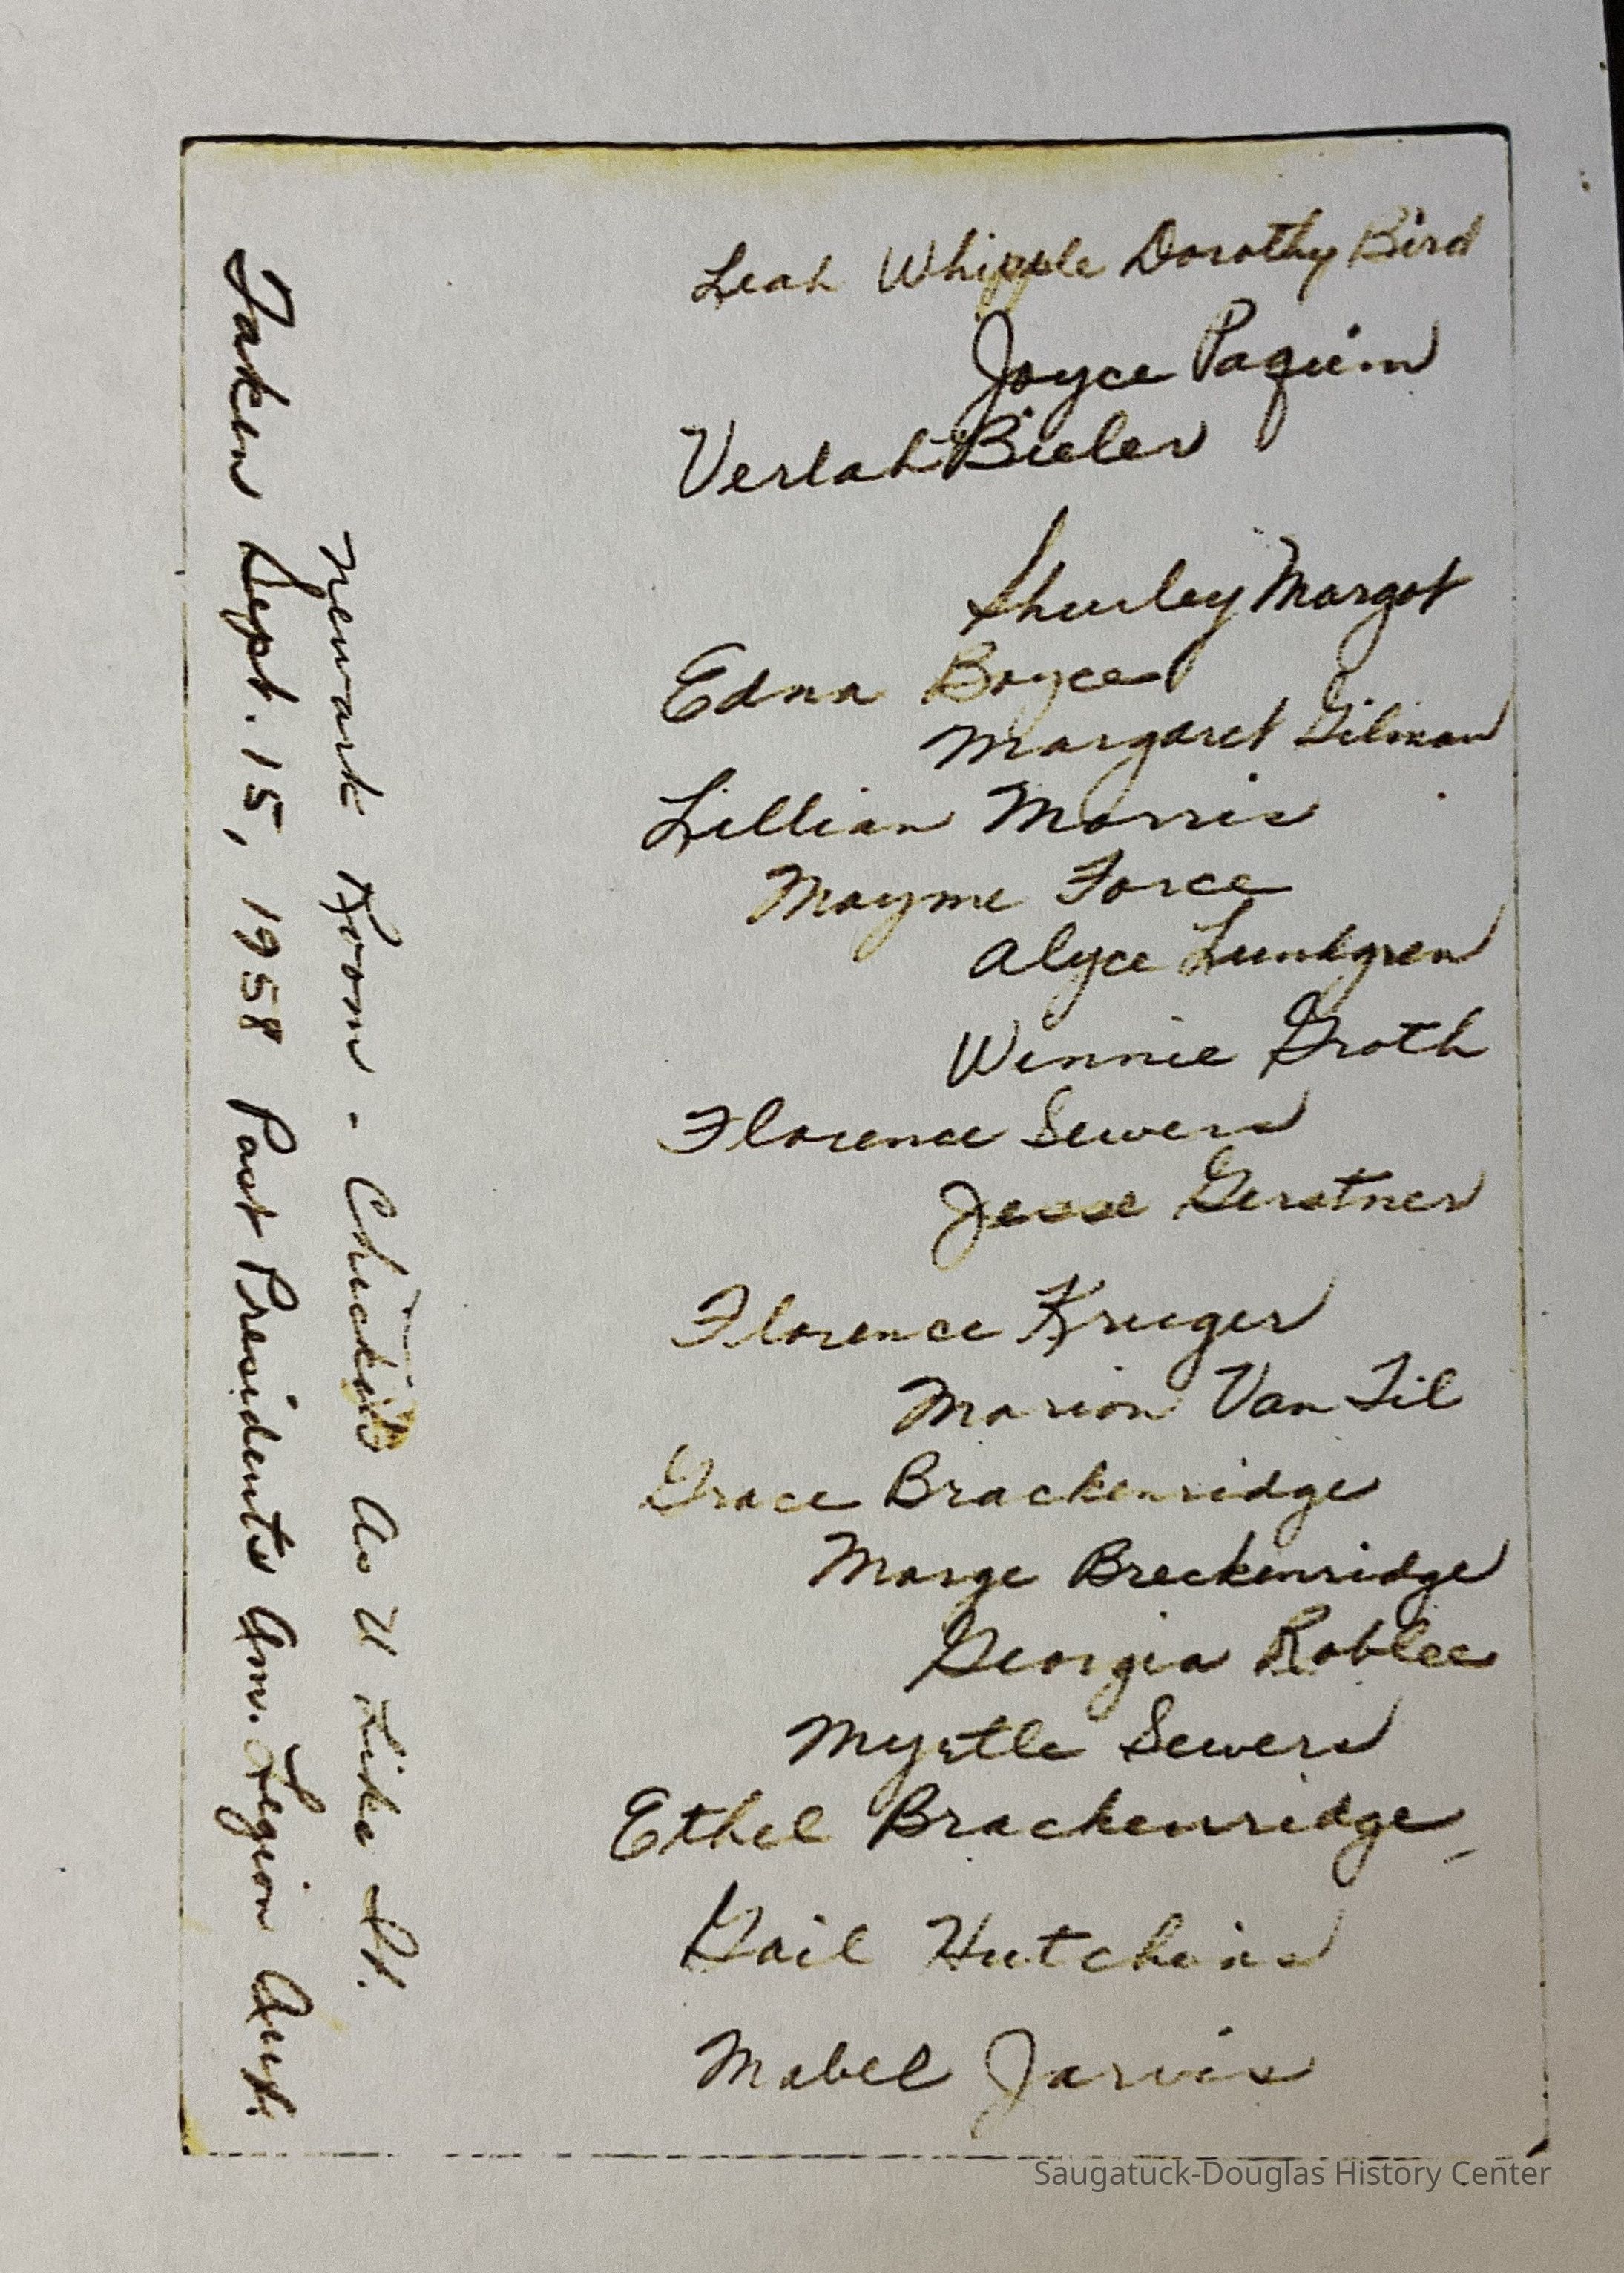 Leah Whipple Dorothy Bird
Joyce Paquin
Verlah Bieler
Shirley Margot
Edna Boyce
Margaret Gilman
Lillian Morris
Mayme Force
Alyce Lundgren
Winnie Groth
Florence Sewers
Jesse Gerstner
Florence Krueger
Marion Van Til
Grace Brackenridge
Marge Breckenridge
Georgia Roblee
Myrtle Sewers
Ethel Brackenridge
Gail Hutchins
Mabel Jarvis
Newark Room - Chicken As U Like It.
Taken Sept. 15, 1958 Past Presidents Am. Legion Aux.
Saugatuck-Douglas History Center